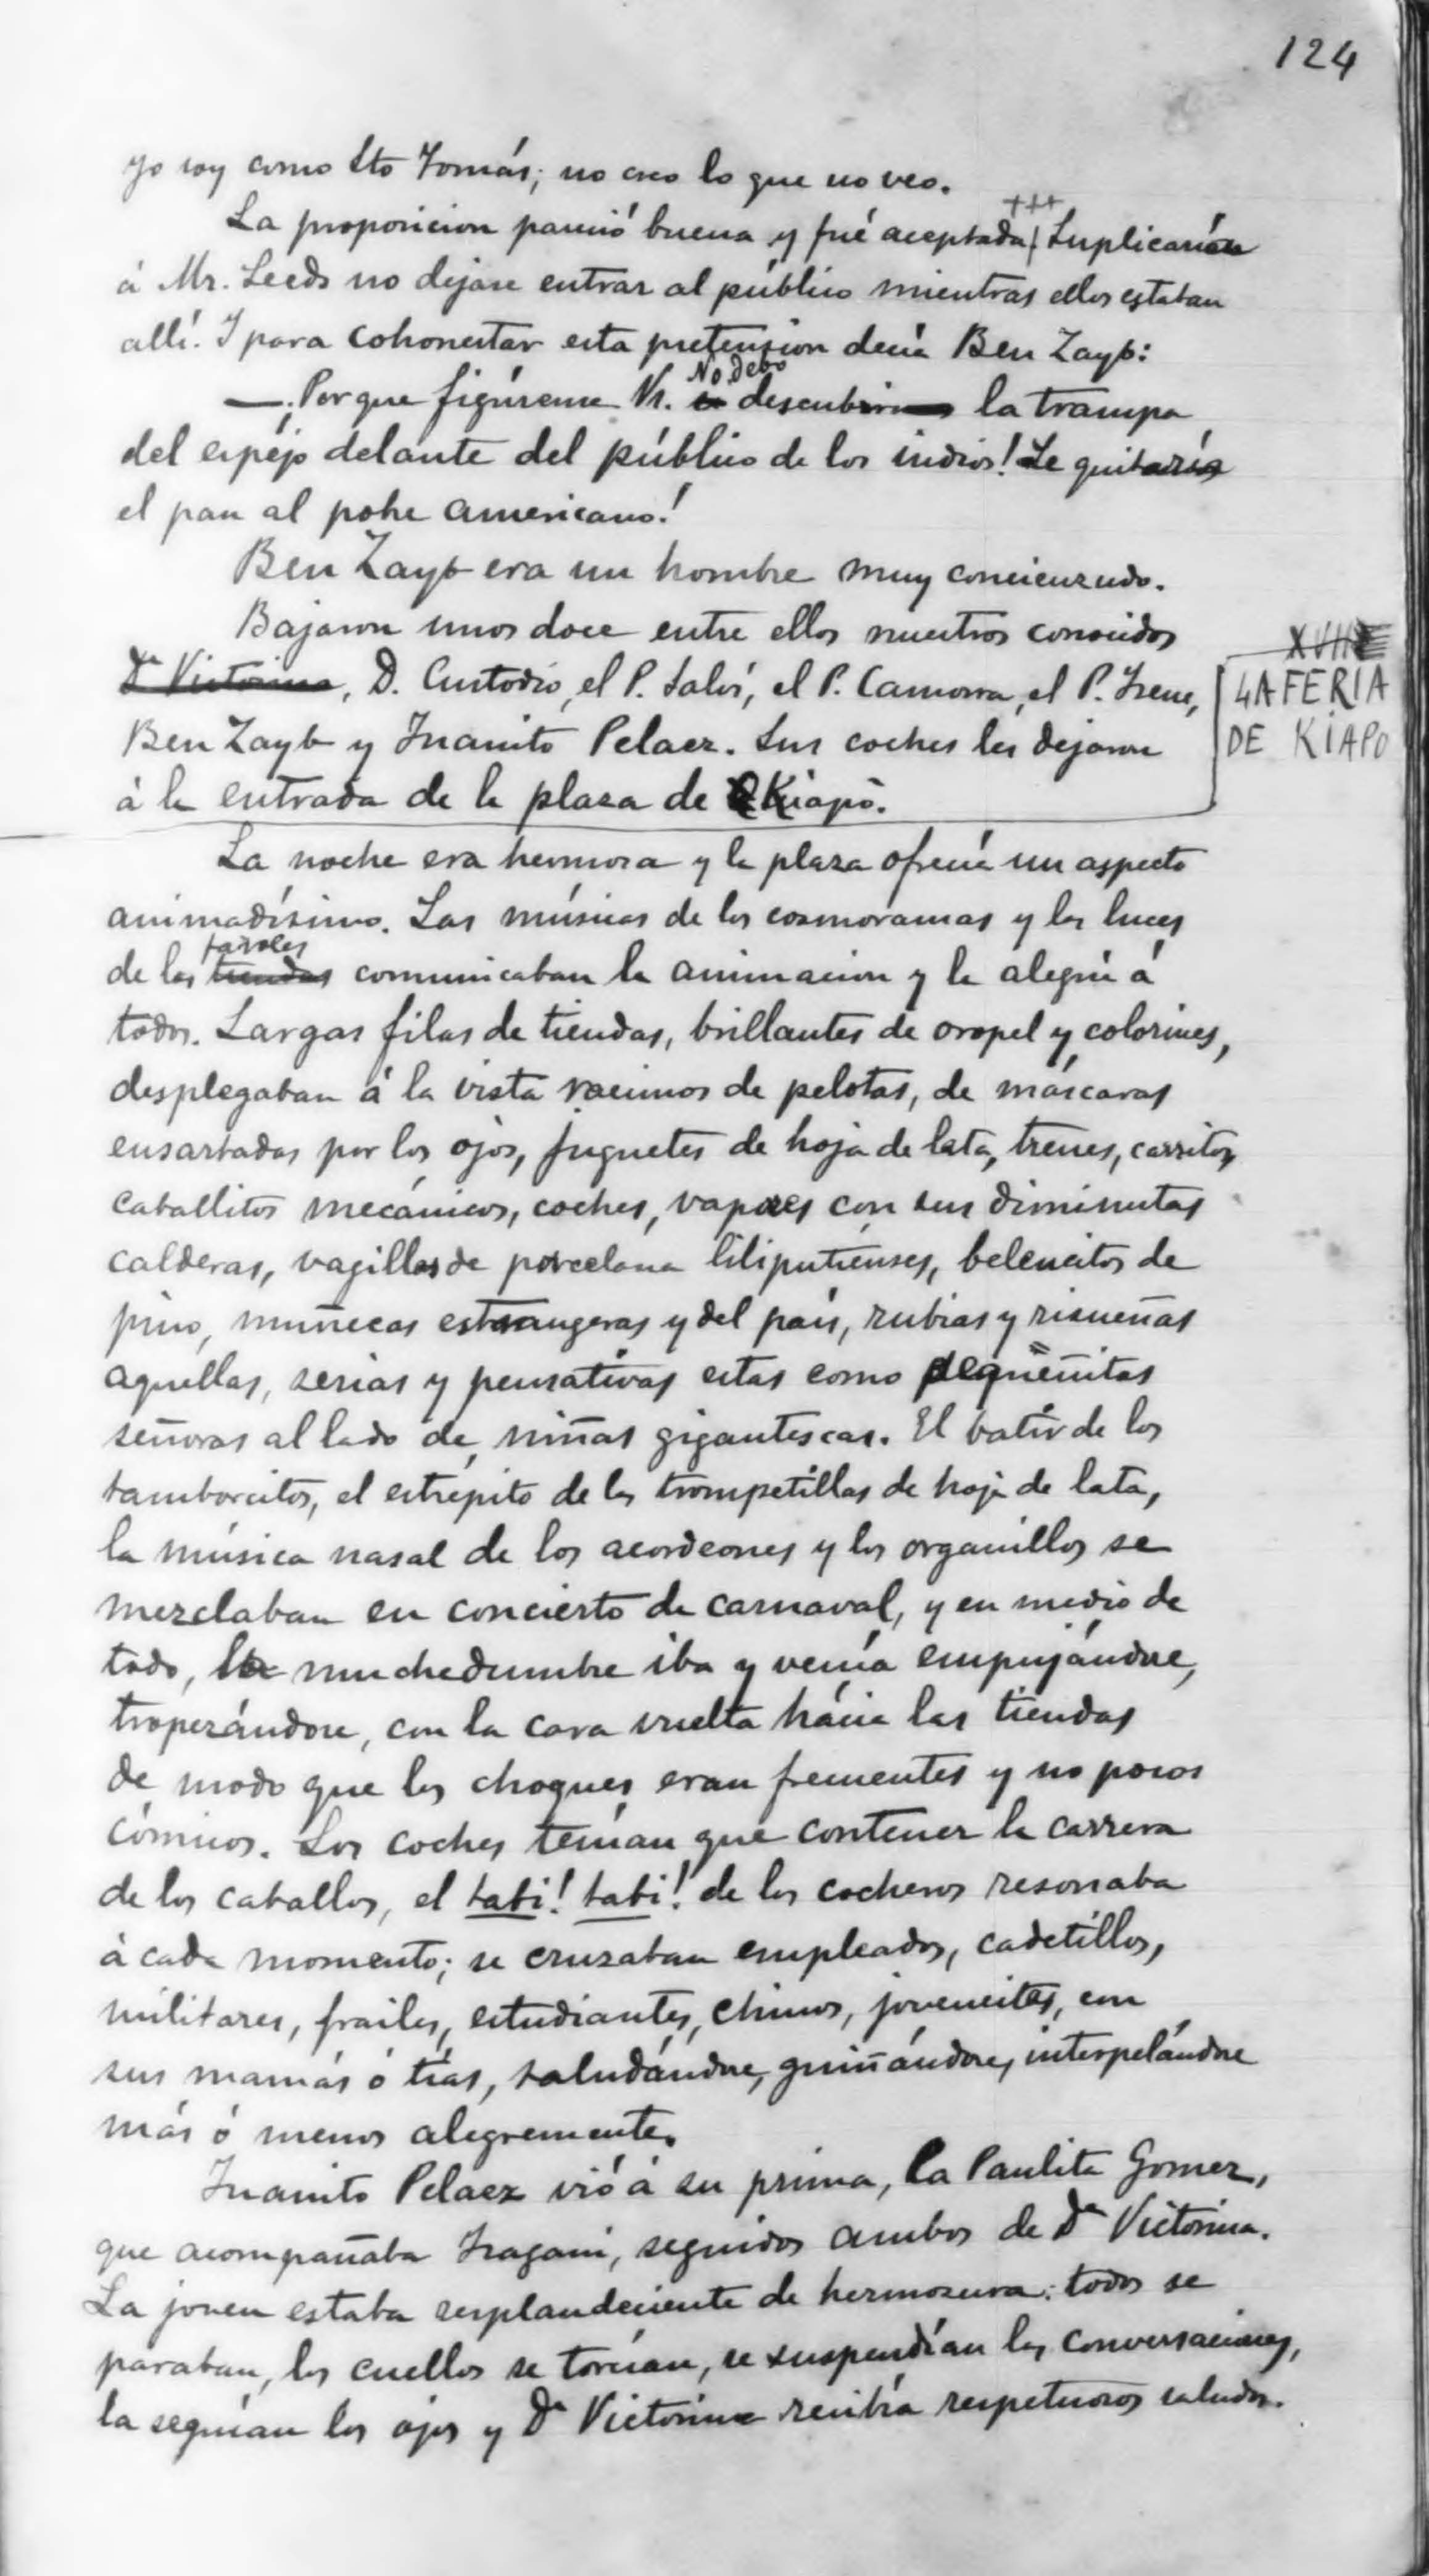 124
Yo soy como Sto Tomás; no creo lo que no veo.
La proposicion pareció buena y fué aceptada +++ Suplicarían
á Mr. Leeds no dejase entrar al público mientras ellos estaban
allí. Y para cohonestar esta pretension decía Ben Zayb:
—¡Porque figúrense V. No debo descubrir la trampa
del espejo delante del público de los indios! Le quitaría
el pan al pobre americano!
Ben Zayb era un hombre muy concienzudo.
Bajaron unos doce entre ellos nuestros conocidos
Dª Victorina, D. Custodio, el P. Salví, el P. Camorra, el P. Irene,
Ben Zayb y Juanito Pelaez. Sus coches les dejaron
á la entrada de la plaza de Kiapò.
XVII
LA FERIA
DE KIAPO
La noche era hermosa y la plaza ofrecía un aspecto
animadísimo. Las músicas de los cosmoramas y las luces
de los tiendas faroles comunicaban la animacion y la alegría á
todos. Largas filas de tiendas, brillantes de oropel y colorines,
desplegaban á la vista racimos de pelotas, de máscaras
ensartadas por los ojos, juguetes de hoja de lata, trenes, carritos,
caballitos mecánicos, coches, vapores con sus diminutas
calderas, vagillas de porcelana liliputienses, belencitos de
pino, muñecas estrangeras y del país, rubias y risueñas
aquellas, serias y pensativas estas como pequeñitas
señoras al lado de niñas gigantescas. El batir de los
tamborcitos, el estrépito de las trompetillas de hoja de lata,
la música nasal de los acordeones y los organillos se
mezclaban en concierto de carnaval, y en medio de
todo, la muchedumbre iba y venía empujándose,
tropezándose, con la cara vuelta hácia las tiendas
de modo que los choques eran frecuentes y no pocos
cómicos. Los coches tenían que contener la carrera
de los caballos, el tabì! tabì! de los cocheros resonaba
á cada momento; se cruzaban empleados, cadetillos,
militares, frailes, estudiantes, chinos, jovencitas, con
sus mamás ó tías, saludándose, guiñándose, interpelándose
más ó menos alegremente.
Juanito Pelaez vió á su prima, la Paulita Gomez,
que acompañaba Isagani, seguidos ambos de Dª Victorina.
La joven estaba resplandeciente de hermosura: todos se
paraban, los cuellos se torcían, se suspendían las conversaciones,
la seguían los ojos y Dª Victorina recibía respetuosos saludos.